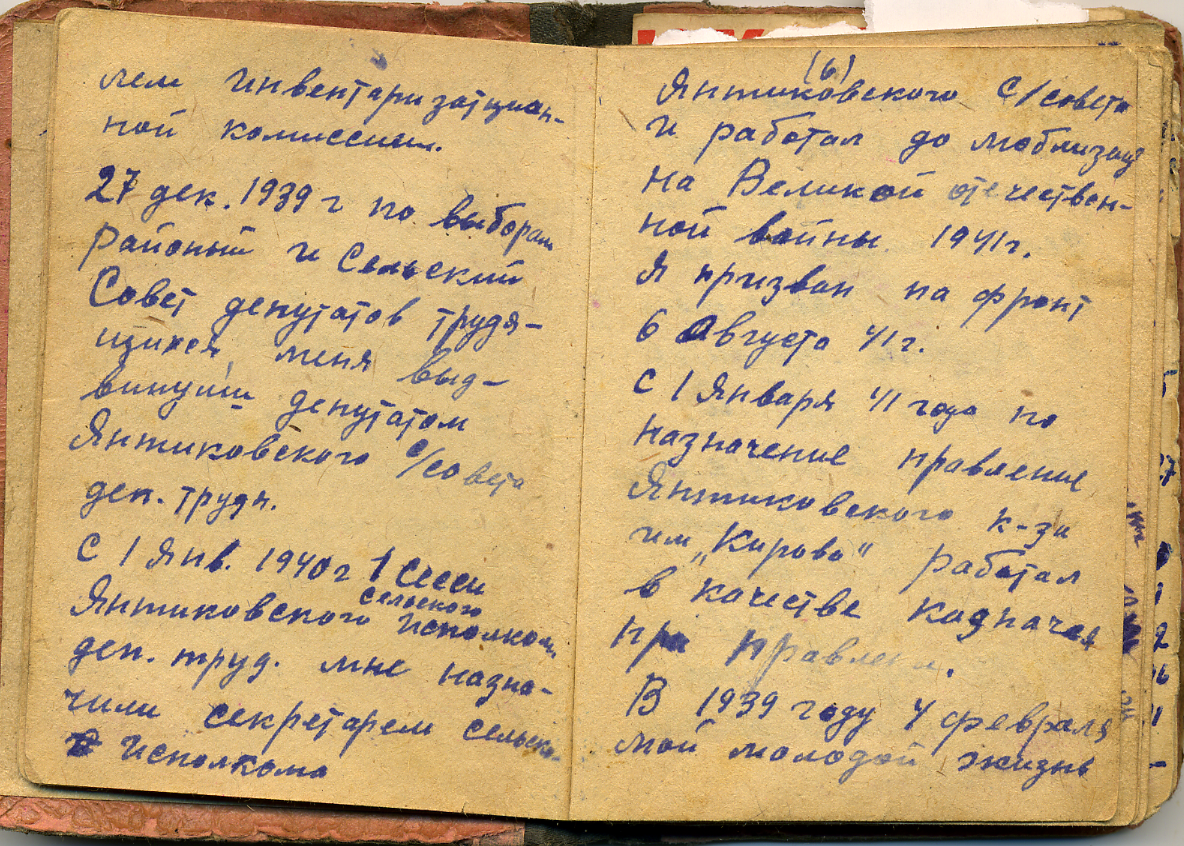 лем инвентаризатцион-
ной комиссии.
27 дек. 1939 г по выборам
районый и Сельский
Совет депутатов трудя-
щихся, меня выд-
винули депутатом
Янтиковского с/совета
деп. трудя.
С 1 Янв. 1940 г 1 Сесси
сельского
Янтиковского Исполком.
деп. труд. мне назна-
чили секретарем сельско-
Исполкома
(6)
Янтиковского С/совета
и работал до моблизаци
на Великой отечествен-
ной войны 1941 г.
Я призван на фронт
6 Августа 41 г.
С 1 Января 41 года по
назначение правление
Янтиковского к-за
им „Кирова" работал
в качестве казначея
при правлени.
В 1939 году 4 февраля
мой молодой жизнь